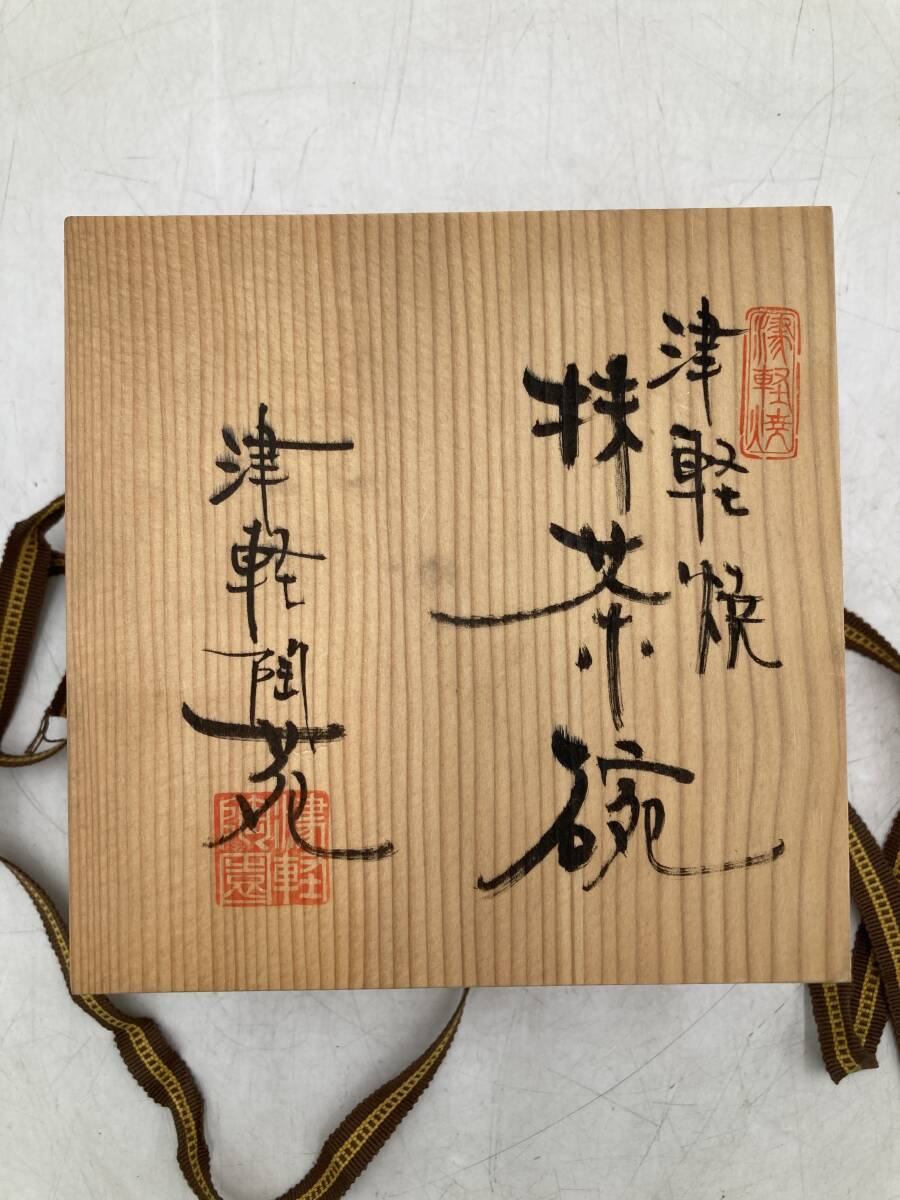 津軽焼
津軽焼
抹茶碗
津軽陶苑
津軽陶園